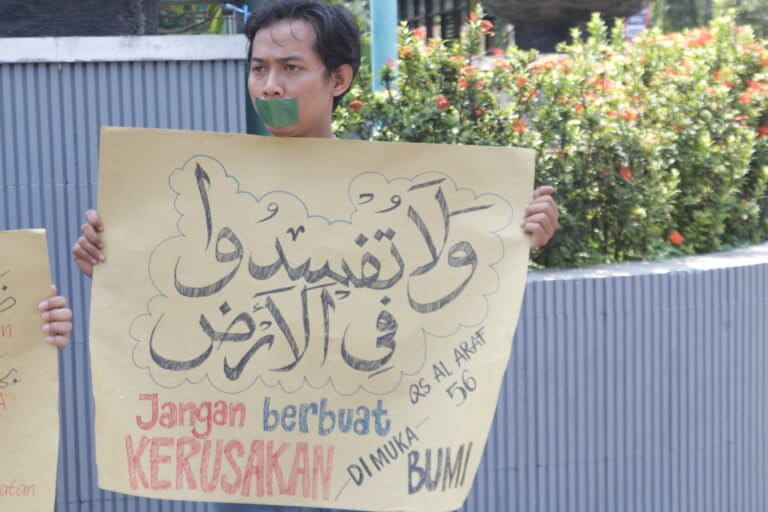 ولا تفسدوا
في الأرض
QS AL ARAF
56
Jangan berbuat
KERUSAKAN
DI MUKA
BUMI
atan